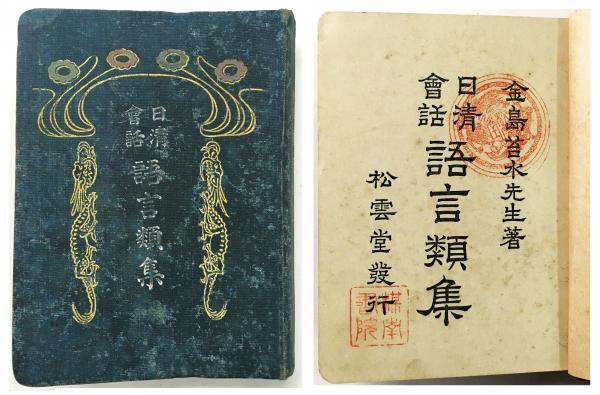 日清
會話
語言類集
金島苔水先生著
日清
會話
語言類集
松雲堂發行